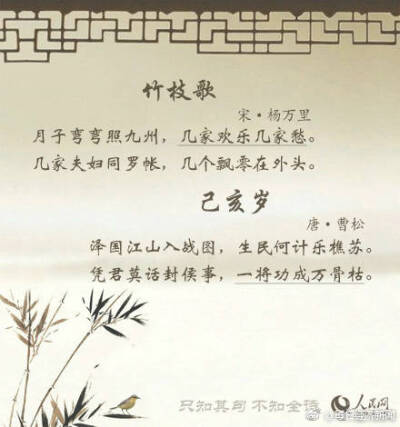 竹枝歌
宋·杨万里
月子弯弯照九州，几家欢乐几家愁。
几家夫妇同罗帐，几个飘零在外头。
己亥岁
唐·曹松
泽国江山入战图，生民何计乐樵苏。
凭君莫话封侯事，一将功成万骨枯。
只知其句 不知全诗
人民网